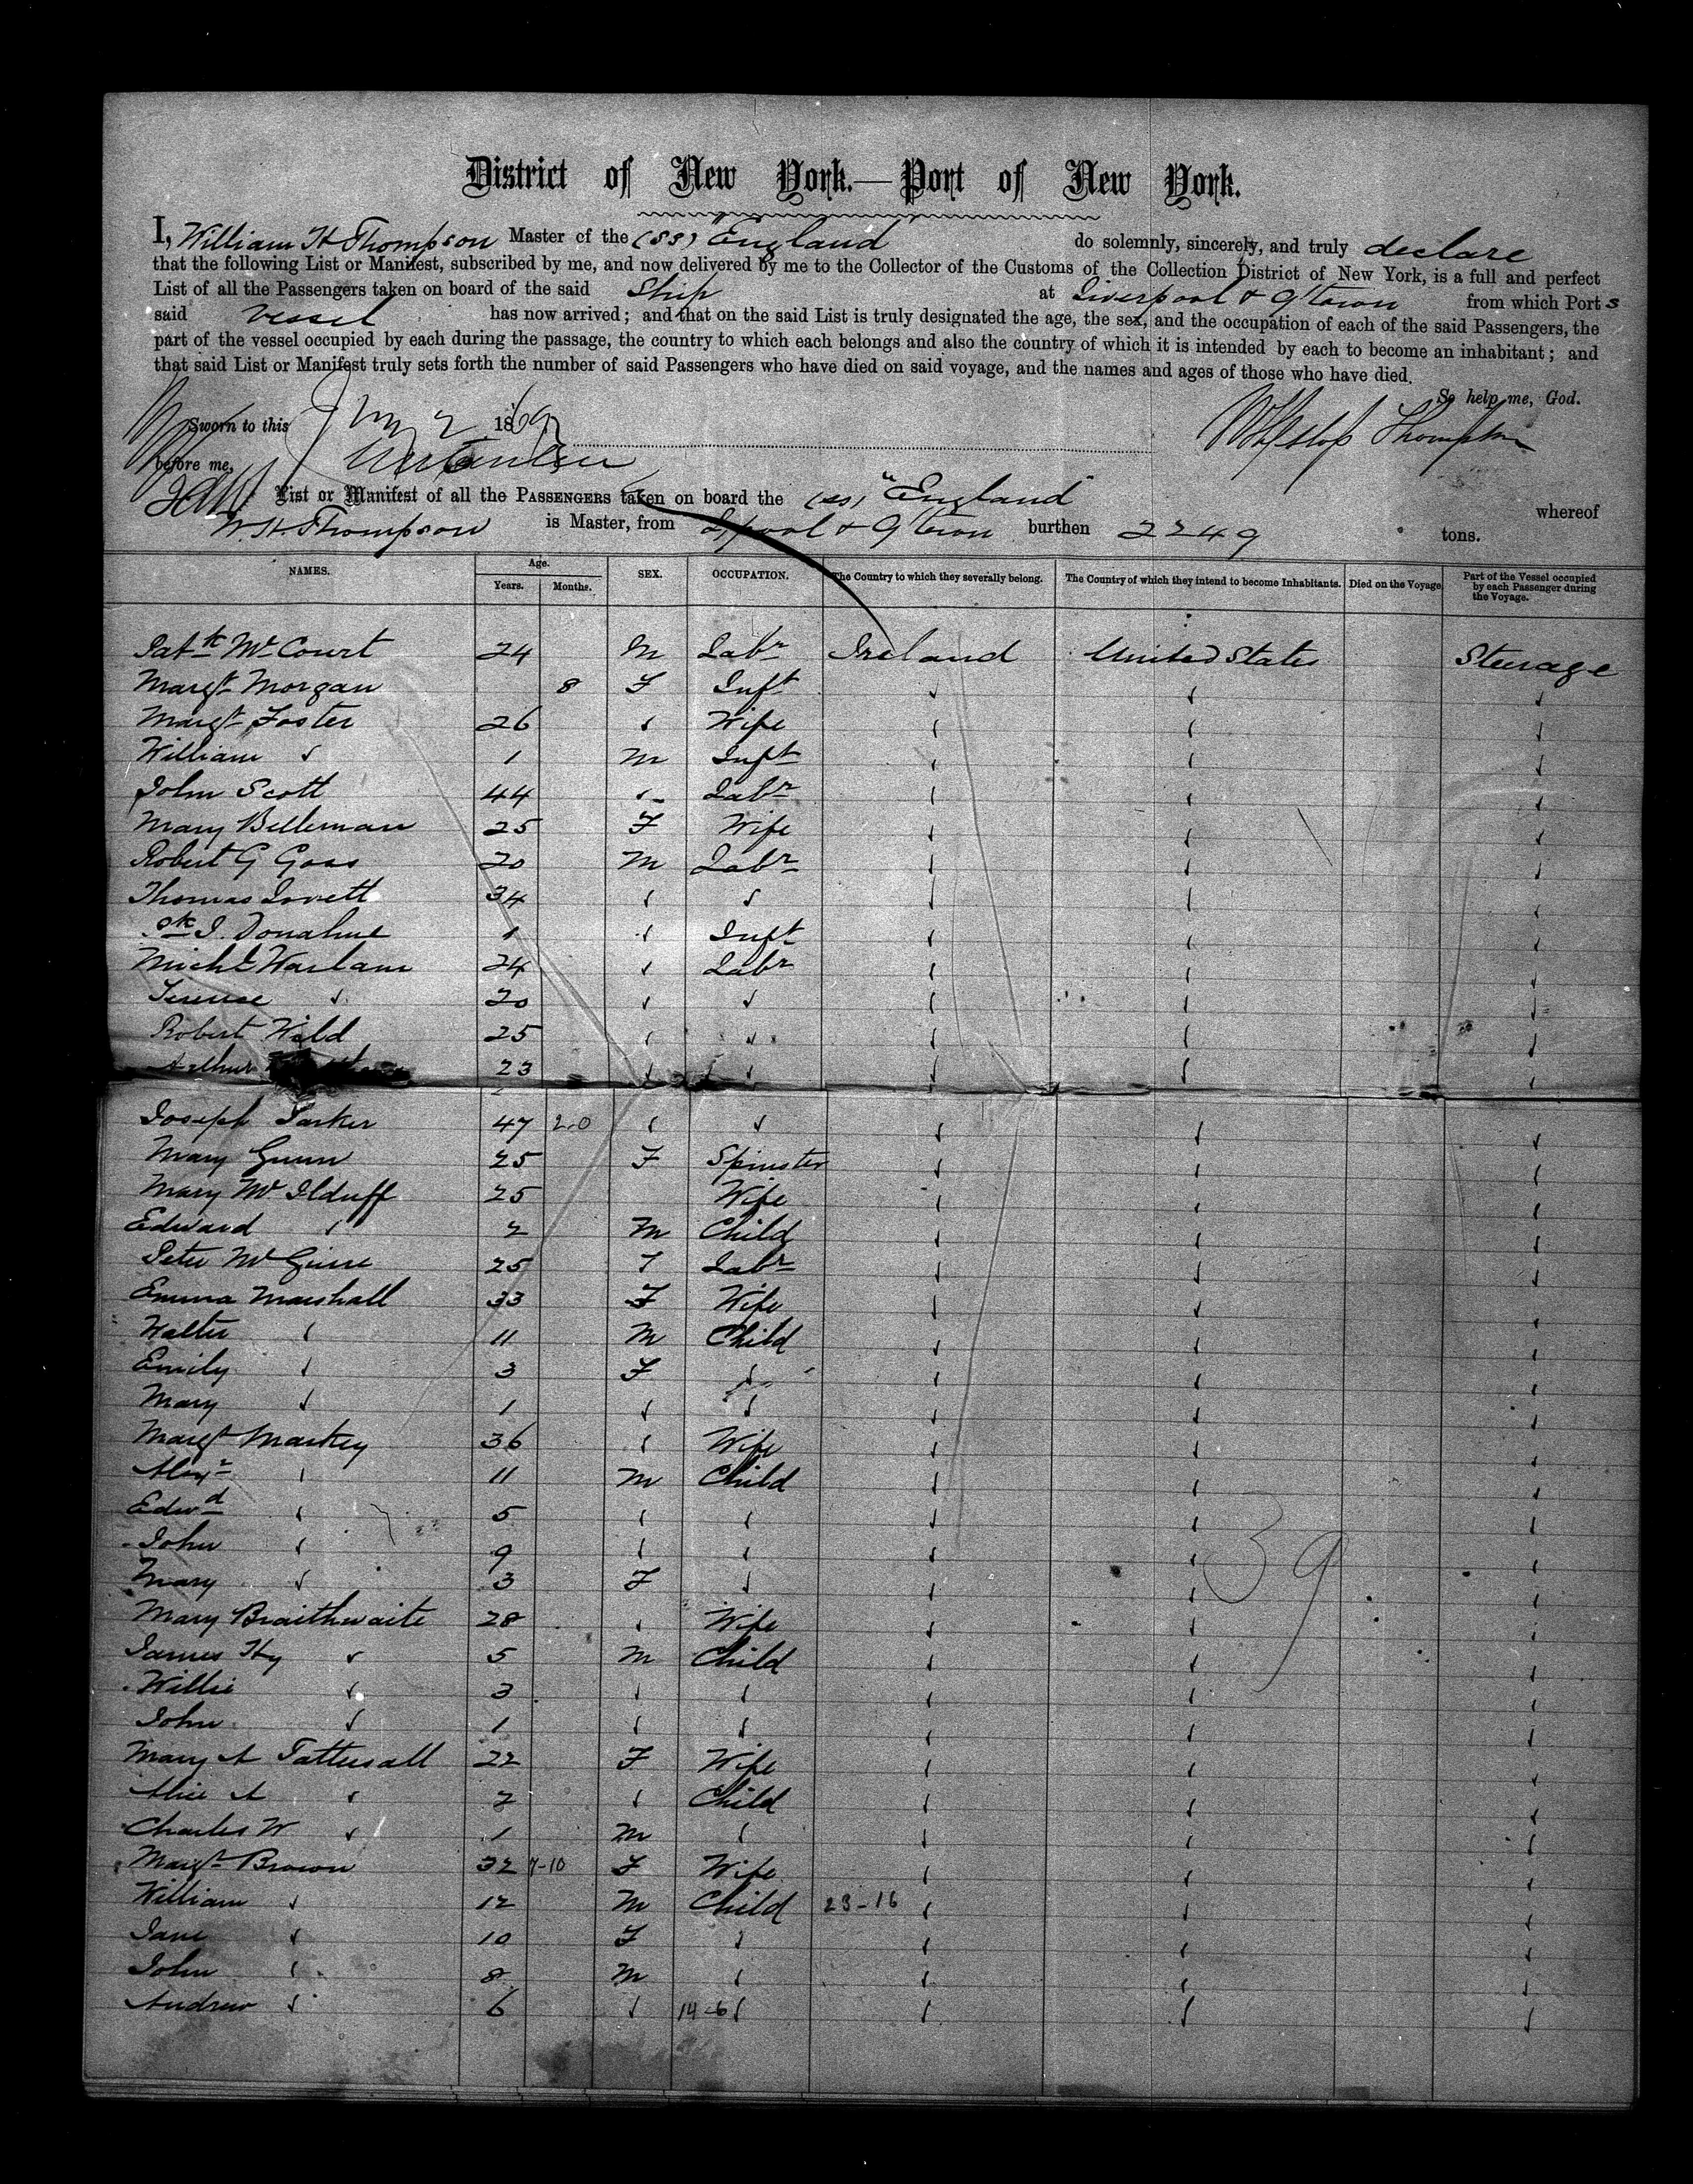 District of New York.—Port of New York.
I, William H Thompson Master of the (SS) "England do solemnly, sincerely, and truly declare
that the following List or Manifest, subscribed by me, and now delivered by me to the Collector of the Customs of the Collection District of New York, is a full and perfect
List of all the Passengers taken on board of the said Ship at Liverpool & Q'town from which Ports
said Vessel has now arrived; and that on the said List is truly designated the age, the sex, and the occupation of each of the said Passengers, the
part of the vessel occupied by each during the passage, the country to which each belongs and also the country of which it is intended by each to become an inhabitant; and
that said List or Manifest truly sets forth the number of said Passengers who have died on said voyage, and the names and ages of those who have died.
So help me, God.
Sworn to this 2 1869 Thompson
before me,
List or Manifest of all the PASSENGERS taken on board the (SS) "England" whereof
W. H. Thompson is Master, from L'pool & Q'town burthen 2249 tons.
NAMES. Age. Years. Months. SEX. OCCUPATION. The Country to which they severally belong. The Country of which they intend to become Inhabitants. Died on the Voyage Part of the Vessel occupied by each Passenger during the Voyage.
Patk McCourt 24 M Labr Ireland United States Steerage
Margt Morgan 8 F Inft
Margt Foster 26 Wife
William 1 M Inft
John Scott 44 Labr
Mary Belleman 25 F Wife
Robert G Goss 20 M Labr
Thomas Lovett 34
Pk J. Donahue 1 Inft
Michl Harlam 24 Labr
Terence 20
Robert Wild 25
Arthur 23
Joseph Parker 47 2-0
Mary Gunn 25 F Spinster
Mary McIlduff 25 Wife
Edward 2 M Child
Peter McGinn 25 Labr
Emma Marshall 33 F Wife
Walter 11 M Child
Emily 3 F
Mary 1
Margt Markey 36 Wife
Alexr 11 M Child
Edwd 5
John 9
Mary 3 F
Mary Braithwaite 28 Wife
James Hy 5 M Child
Willie 3
John 1
Mary A Tattersall 22 F Wife
Alice A 2 Child
Charles W 1 M
Margt Brown 32 7-10 F Wife
William 12 M Child 23-16
Jane 10 F
John 8 M
Andrew 6 14-6
39